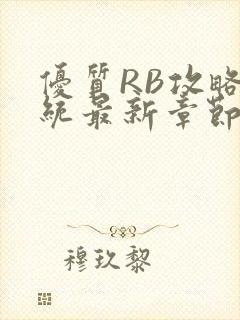 優質RB攻略
統最新章節
穆玖黎